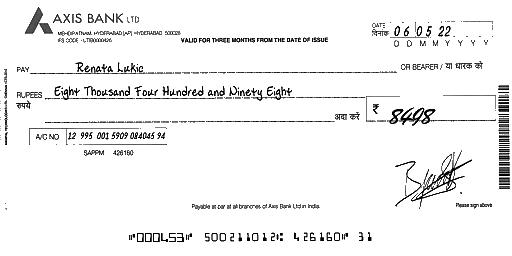 AXIS BANK LTD
MEHDIPATNAM, HYDERABAD [AP] -HYDERABAD 500028
IFS CODE : UTIB0000426
VALID FOR THREE MONTHS FROM THE DATE OF ISSUE
DATE
दिनांक 06 05 22
D D M M Y Y Y Y
PAY Renata Lukic OR BEARER / या धारक को
RUPEES Eight Thousand Four Hundred and Ninety Eight
रुपये अदा करें ₹ 8498
A/C NO 12 995 001 5909 084045 94
SAPPM 426160
Payable at par at all branches of Axis Bank Ltd in India.
Please sign above
"000453" 500211012: 426160" 31